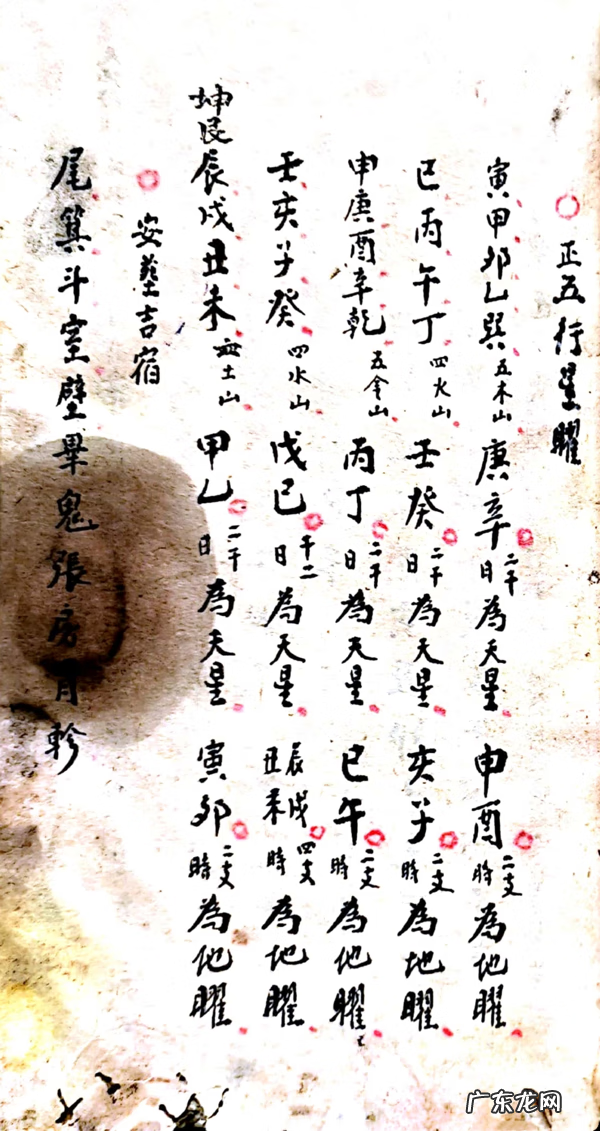 正五行星曜
寅甲卯乙巽五木山庚辛二干日為天星申酉二支時為地曜
巳丙午丁四火山壬癸二干日為天星亥子二支時為地曜
申庚酉辛乾五金山丙丁二干日為天星巳午二支時為地曜
壬亥子癸四水山戊己干二日為天星辰戌丑未四支時為地曜
坤艮辰戌丑未土山甲乙二干日為天星寅卯二支時為地曜
安塟吉宿
尾箕斗室壁畢鬼張房胃軫
广东龙网